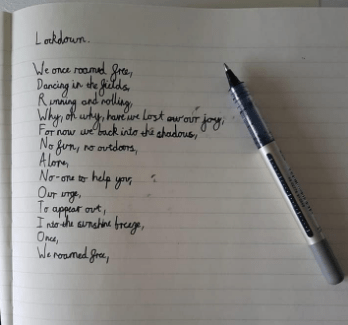 Lockdown.
We once roamed free,
Dancing in the fields,
Running and rolling,
Why, oh why, have we lost our our joy,
For now we back into the shadows,
No fun, no outdoors,
Alone,
No-one to help you,
Our urge,
To appear out,
Into the sunshine breeze,
Once,
We roamed free,